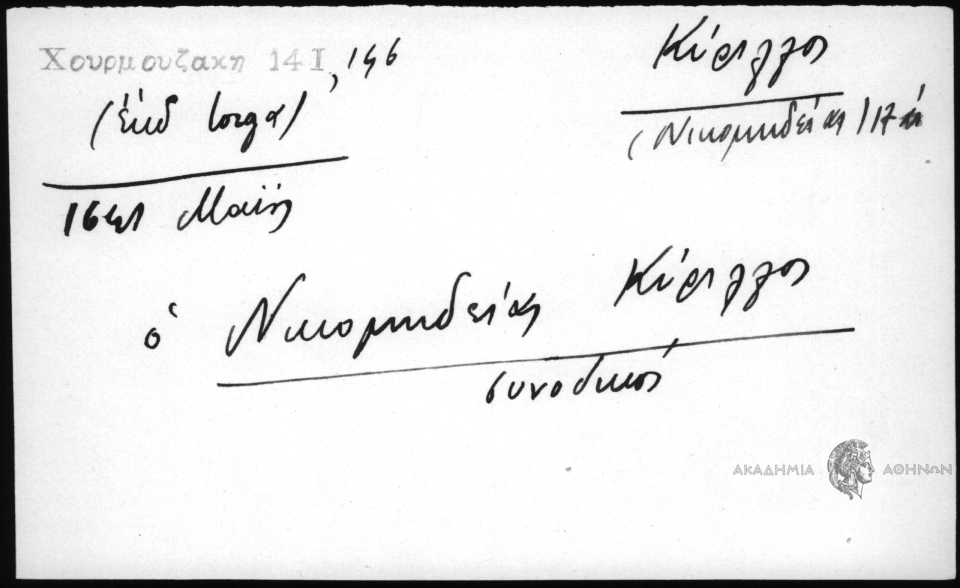 Χουρμουζακη 14Ι, 146
(ἔκδ Iorga)
Κύριλλος
(Νικομηδείας) 17
Μαΐῳ
ὁ Νικομηδείας Κύριλλος
συνοδικός
ΑΚΑΔΗΜΙΑ ΑΘΗΝΩΝ